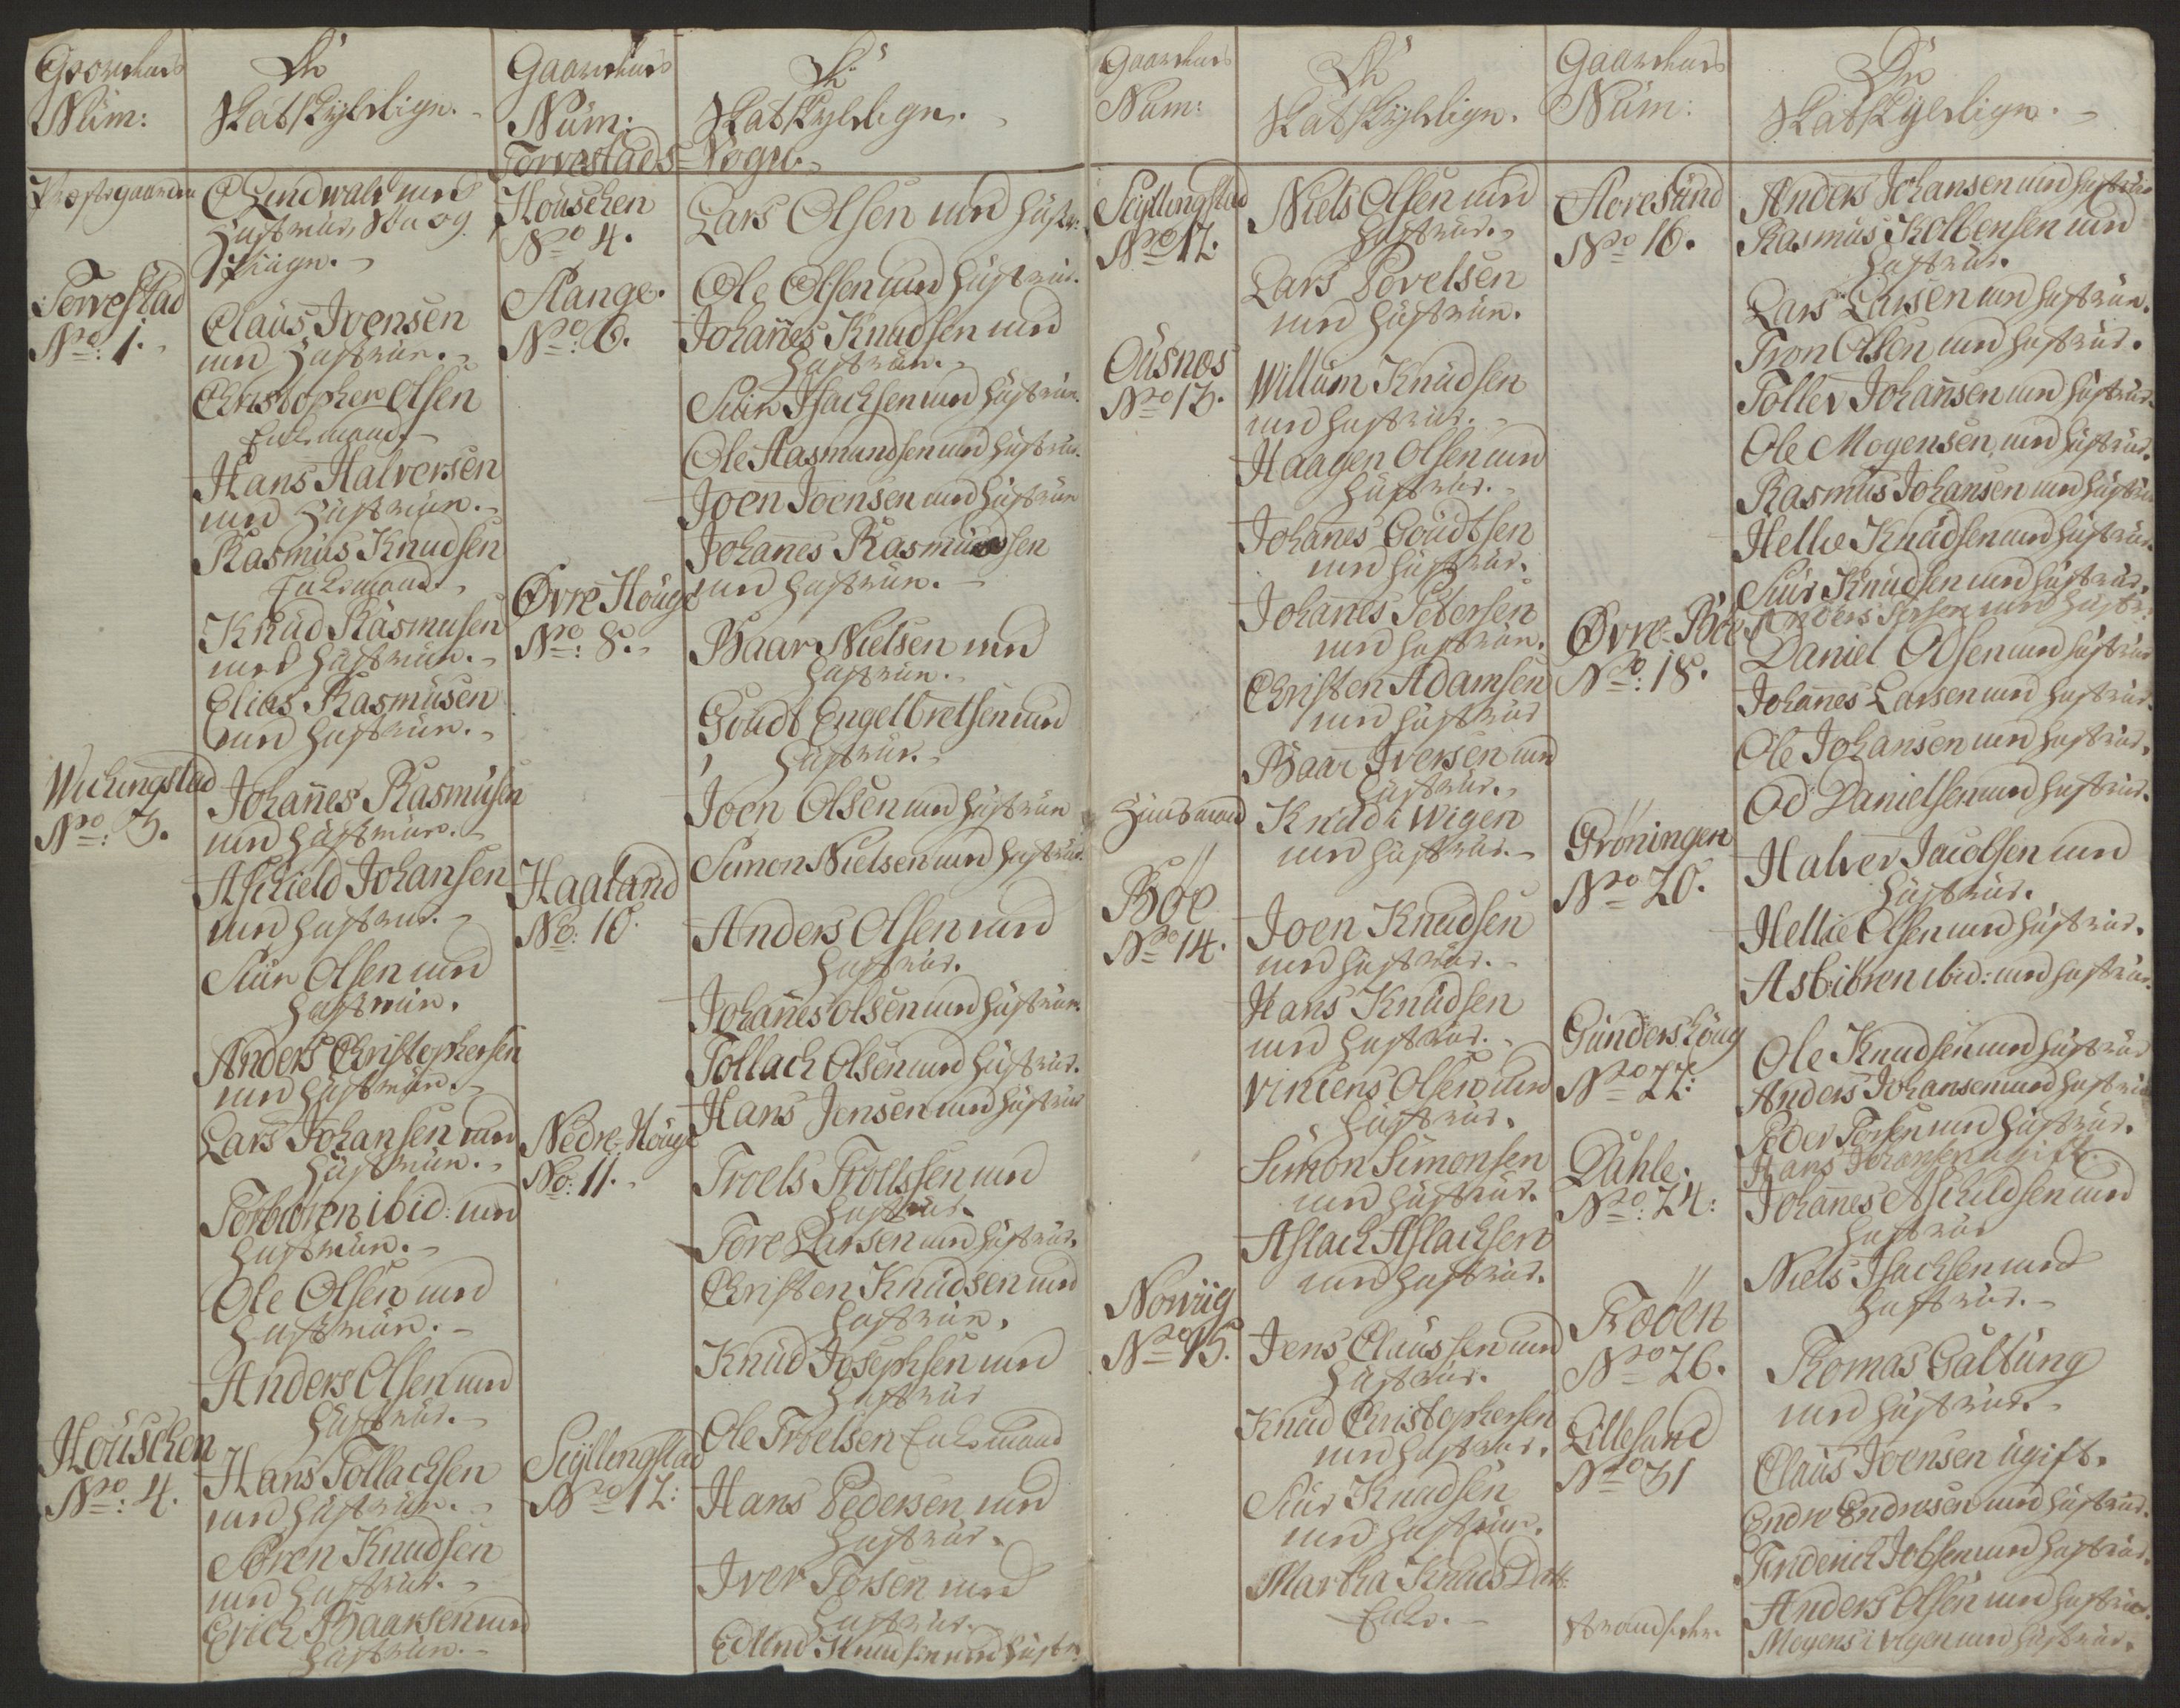 Gaardens
Num:
De
Skatskyldige.
Præstegaarden
C Lindwald med
Hustrue, Søn og
Torvestad
No: 1.
Claus Ivensen
med Hustrue.
Christopher Olsen
Enkemand.
Hans Halversen
med Hustrue.
Rasmus Knudsen
Enkemand.
Knud Rasmusen
med Hustrue.
Elias Rasmusen
med Hustrue.
Wichingstad
No: 3.
Johañes Rasmusen
med Hustrue.
Aschield Johansen
med Hustrue.
Siur Olsen med
Hustrue.
Anders Christophersen
med Hustrue.
Lars Johansen med
Hustrue.
Torbiøren ibid: med
Hustrue.
Ole Olsen med
Hustrue.
Anders Olsen med
Hustrue.
Houschen
No: 4.
Hans Tollachsen
med Hustrue.
Søren Knudsen
med Hustrue.
Erich Baarsen med
Hustrue.
Gaardens
Num:
De
Skatskyldige.
Torvestads Sogn.
Houschen
No 4.
Lars Olsen med Hustr:
Ole Olsen med Hustrue.
Stange.
No: 6.
Johañes Knudsen med
Hustrue.
Siur Isachsen med Hustrue.
Ole Aasmundsen med Hustrue.
Joen Joensen med Hustrue
Johanes Rasmussen
med Hustrue.
Øvre Houge
No: 8.
Baar Nielsen med
Hustrue.
Goudt Engelbretsen med
Hustrue.
Joen Olsen med Hustrue
Simon Nielsen med Hustrue.
Haaland
No: 10.
Anders Olsen med
Hustrue.
Johañes Olsen med Hustrue.
Tollach Olsen med Hustrue.
Hans Jensen med Hustrue
Nedre Houge
No: 11.
Troels Trollssen med
Hustrue.
Tore Larsen med Hustrue.
Christen Knudsen med
Hustrue.
Knud Josephsen med
Hustrue
Ole Troelsen Enkemand
Scyllingstad
No 12:
Hans Pedersen med
Hustrue.
Iver Torsen med
Hustrue.
Edlend Knudsen med Hustr:
Gaardens
Num:
De
Skatskyldige.
Scyllingstad
No 12.
Niels Olsen med
Hustrue.
Lars Povelsen
med Hustrue.
Ousnos
No 13.
Willum Knudsen
med Hustrue.
Haagen Olsen med
Hustrue.
Johañes Goudtsen
med Hustrue.
Johañes Petersen
med Hustrue.
Christen Adamsen
med Hustrue
Baar Iversen med
Hustrue.
Huusmand
Knud i Wigen
med Hustrue.
Böe
No 14.
Joen Knudsen
med Hustrue.
Hans Knudsen
med Hustrue.
Vincens Olsen med
Hustrue.
Simon Simonsen
med Hustrue.
Aslach Aslachsen
med Hustrue.
Norvig
No 15.
Jens Claussen med
Hustrue.
Knud Christophersen
med Hustrue.
Siur Knudsen
med Hustrue.
Martha Knuds Datt:
Enke.
Gaardens
Num:
De
Skatskyldige.
Storesund
No 16.
Anders Johansen med Hustrue
Rasmus Kolbensen med
Hustrue.
Lars Larsen med Hustrue.
Tron Olsen med Hustrue.
Tollev Johañsen med Hustrue.
Ole Mogensen med Hustrue.
Rasmus Johansen med Hustrue
Hellie Knudsen med Hustrue.
Siur Knudsen med Hustrue.
Øvre Böe
No: 18.
Daniel Olsen med Hustrue
Johañes Larsen med Hustrue.
Ole Johansen med Hustrue.
Od Danielsen med Hustrue.
Gröningen
No 20.
Halver Jacobsen med
Hustrue.
Hellie Olsen med Hustrue.
Asbiören ibid: med Hustrue.
Gundershoug
No 22:
Ole Knudsen med Hustrue
Anders Johansen med Hustrue
Peder Torsen med Hustrue.
Hans Johansen ugift.
Dahle.
No: 24:
Johañes Aschildsen med
Hustrue
Niels Isachsen med
Hustrue.
Fööen
No 26.
Thomas Galtung
med Hustrue.
Lillesund
No 31
Claus Joensen ugift.
Endre Endresen med Hustrue.
Friderich Jobsen med Hustrue.
Anders Olsen med Hustrue.
Mogens i Vigen med Hustrue.